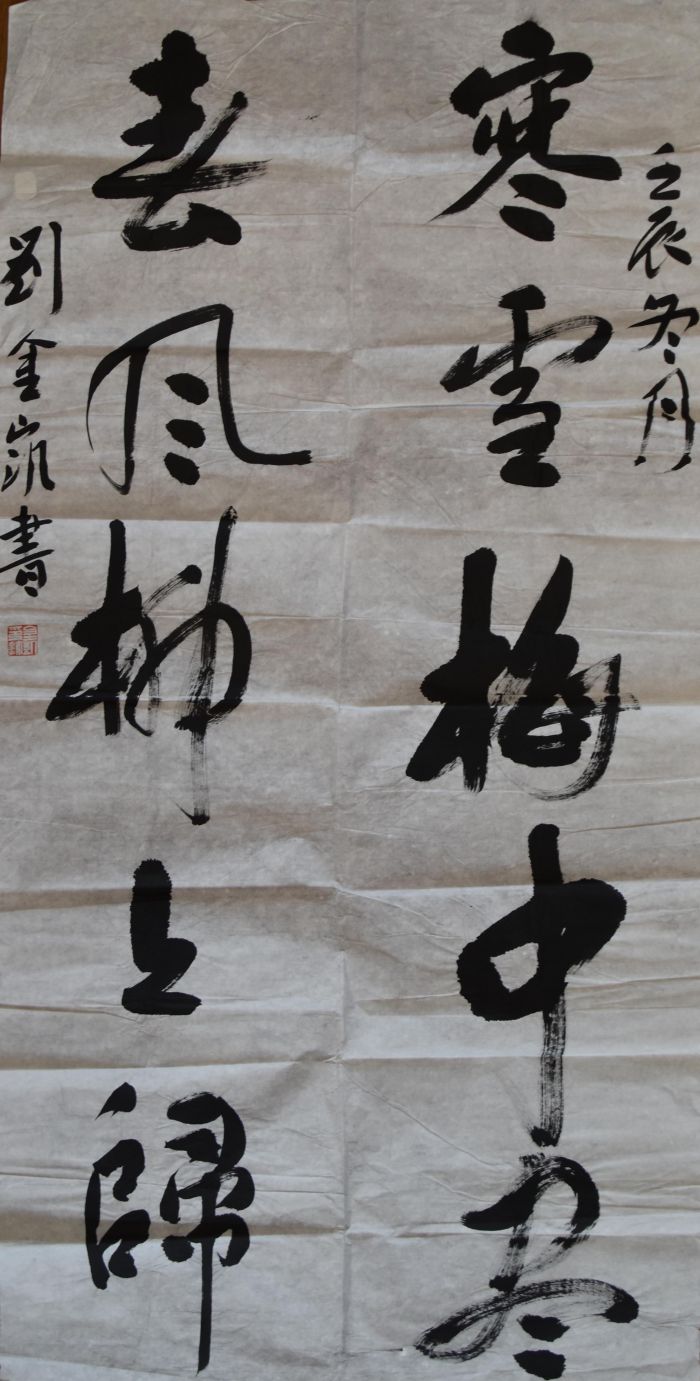 壬辰冬月
寒雪梅中尽
春风柳上歸
劉金凱書